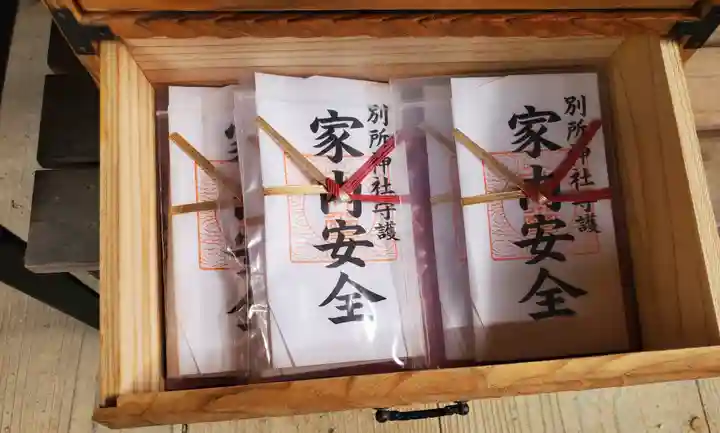 別所神社守護
家内安全
別所神社守護
家内安全
家内安全